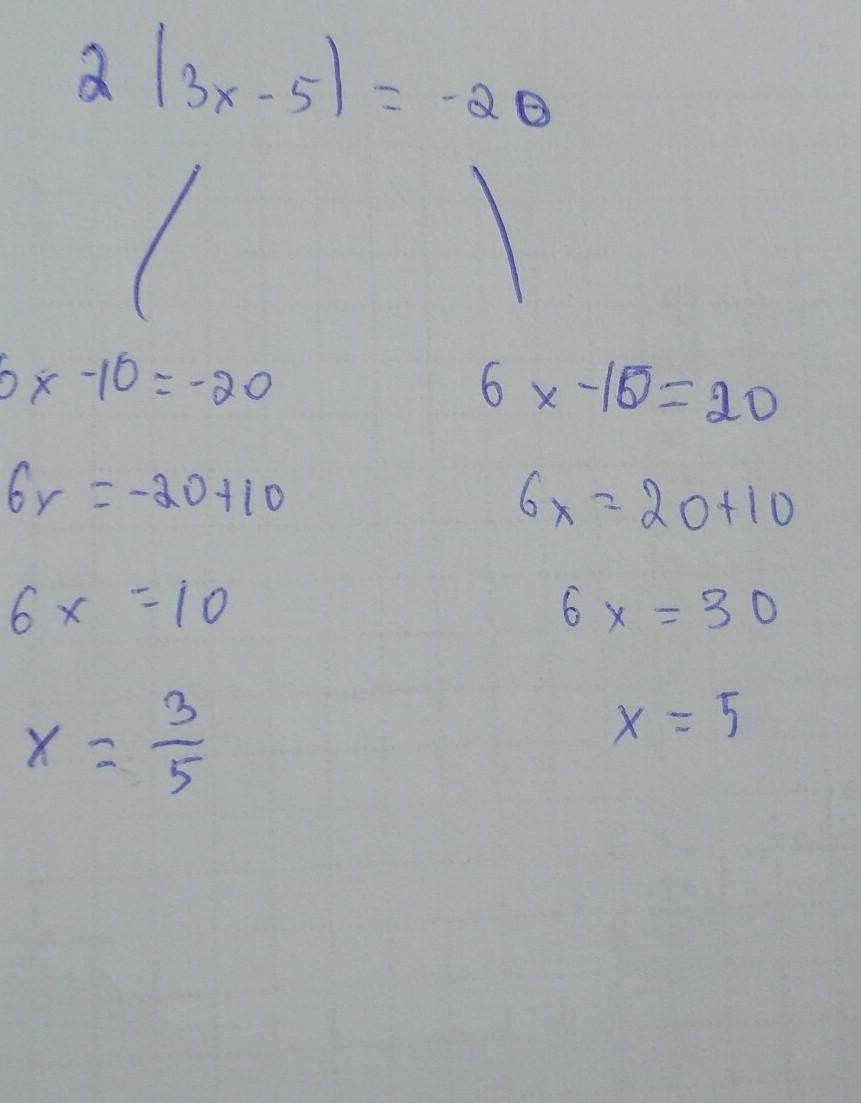 2 |3x - 5| = -20
6x -10 = -20
6x -10 = 20
6x = -20+10
6x = 20+10
6x = 10
6x = 30
x = 3/5
x = 5